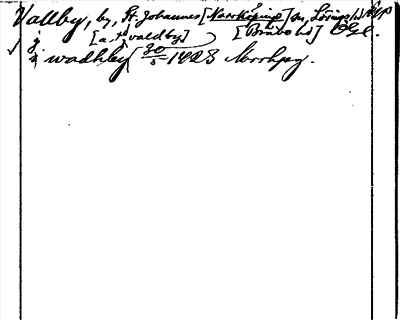 Vallby, by, St. Johannes [Norrköping] sn, Lösings hd
[a. t. valdby] [Bråbo hd] Ögl.
i wadhby 30/5 1423 Norrkpg.